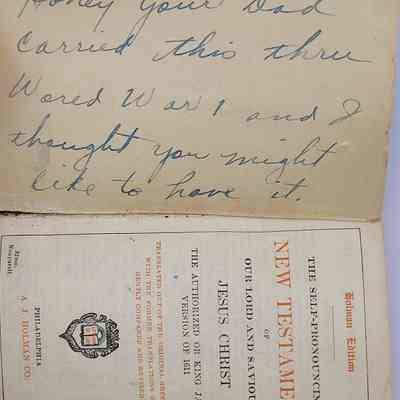 Honey Your Dad
Carried this thru
Wored War 1 and I
thought you might
like to have it.
Holman Edition
THE SELF-PRONOUNCIN
NEW TESTAME
OF
OUR LORD AND SAVIOU
JESUS CHRIST
THE AUTHORIZED OR KING J
VERSION OF 1611
TRANSLATED OUT OF THE ORIGINAL GREE
WITH THE FORMER TRANSLATIONS D
GENTLY COMPARED AND REVISED
PHILADELPHIA
A. J. HOLMAN CO.